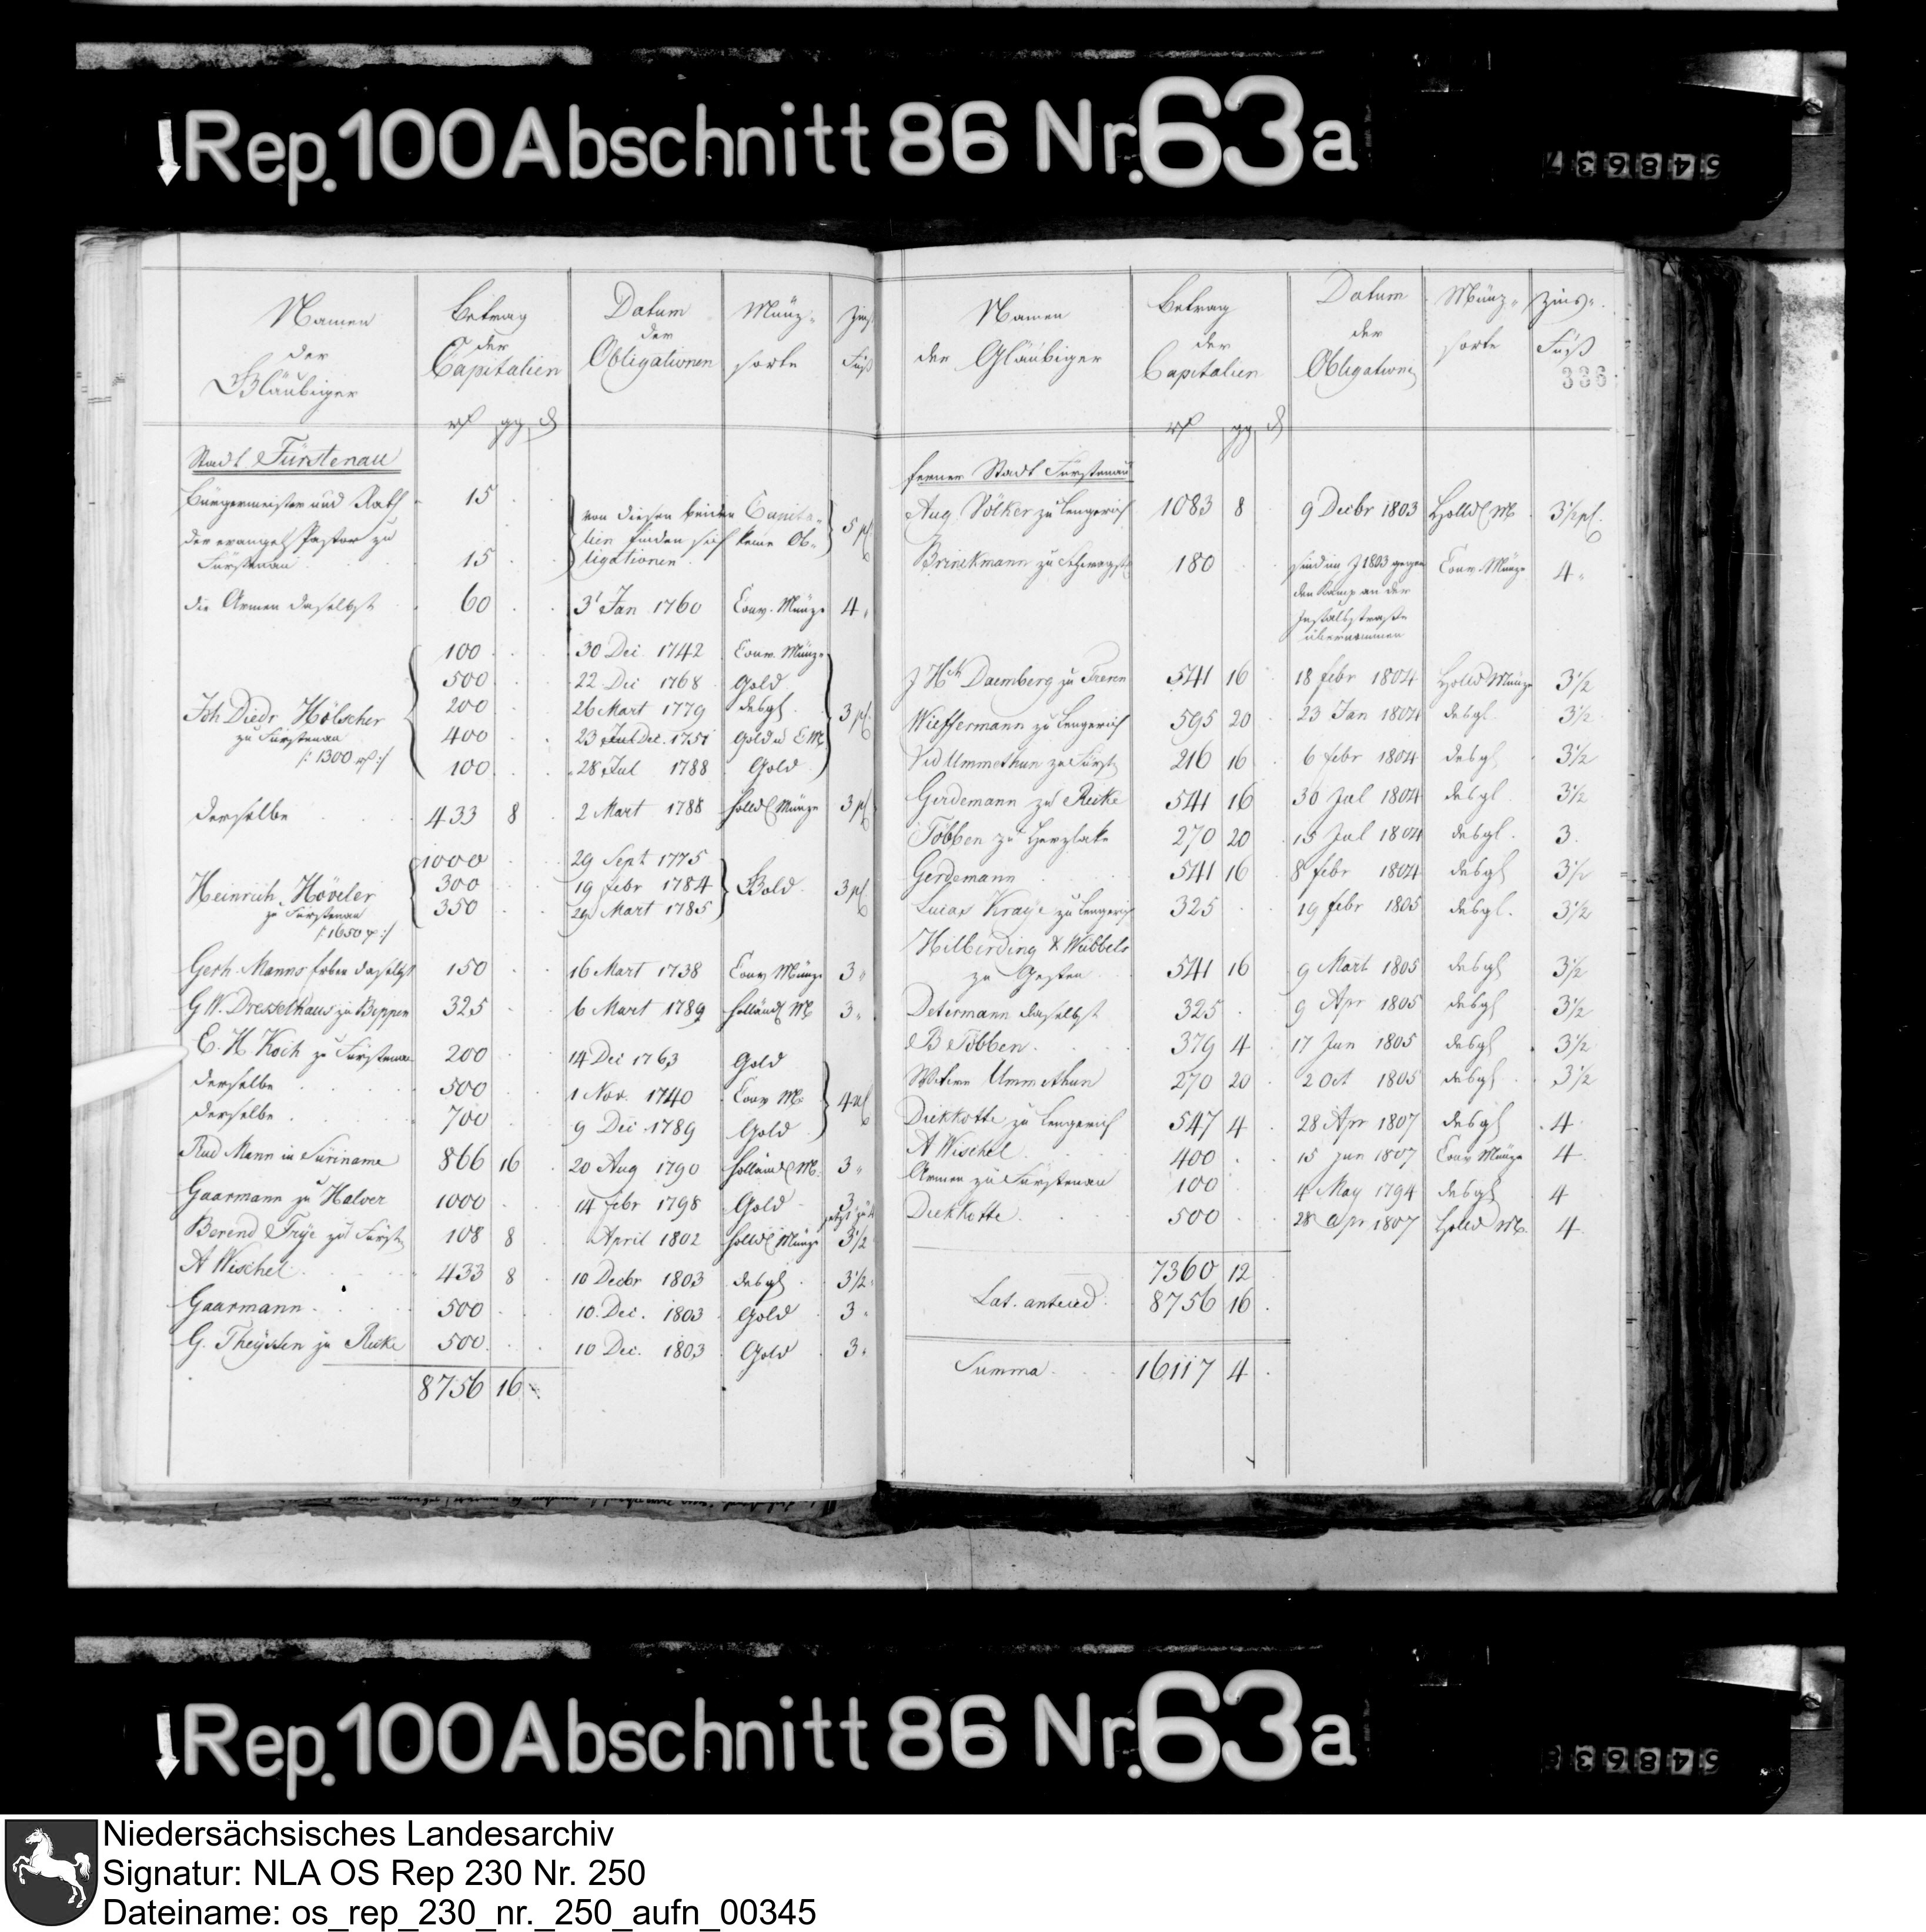 Rep. 100 Abschnitt 86 Nr. 63a
548637
Namen der Gläubiger | Betrag der Capitalien | Datum der Obligationen | Münz-sorte | Zins Fuß
rt gg d
Stadt Fürstenau
Bürgermeister und Rath 15
der evangel Pastor zu Fürstenau 15
von diesen beiden Capita-
lien finden sich keine Ob-
ligationen 5 pC
die Armen daselbst 60 31 Jan 1760 Conv. Münze 4
Joh Diedr Hölscher zu Fürstenau /: 1300 rt :/
100 30 Dec 1742 Conv. Münze
500 22 Dec 1768 Gold
200 26 Mart 1779 desgl
400 23 Dec. 1751 Gold u CM
100 28 Jul 1788 Gold
3 pC
derselbe 433 8 2 Mart 1788 holld Münze 3 pC
Heinrich Höveler zu Fürstenau /: 1650 rt :/
1000 29 Sept 1775
300 19 febr 1784 Gold 3 pC
350 29 Mart 1785
Gerh. Manns Erben daselbst 150 16 Mart 1738 Conv Münze 3
G W. Dresselhaus zu Bippen 325 6 Mart 1789 holländ M 3
E. H. Koch zu Fürstenau 200 14 Dec 1763 Gold
derselbe 500 1 Nov. 1740 Conv M.
derselbe 700 9 Dec 1789 Gold
4 pC
Rud Mann in Suriname 866 16 20 Aug 1790 holländ M. 3
Gaarmann zu Halver 1000 14 febr 1798 Gold 3 jetzt zu 4
Berend Frye zu Fürst 108 8 April 1802 holld Münze 3 1/2
A Wischel 433 8 10 Decbr 1803 desgl 3 1/2
Gaarmann 500 10. Dec. 1803 Gold 3
G. Theyssen zu Recke 500 10 Dec. 1803 Gold 3
8756 16
Namen der Gläubiger | Betrag der Capitalien | Datum der Obligationen | Münz-sorte | Zins-Fuß
336
rt gg d
ferner Stadt Fürstenau
Aug Völker zu Lengerich 1083 8 9 Decbr 1803 Holld M 3 1/2 pC.
Brinckmann zu 180 sind im J 1803 gegen Conv. Münze 4
den Kamp an der
übernommen
J Hch Daemberg zu Freren 541 16 18 febr 1804 Holld Münze 3 1/2
Wieffermann zu Lengerich 595 20 23 Jan 1804 desgl. 3 1/2
Wid Ummethun zu Fürst 216 16 6 febr 1804 desgl 3 1/2
Gerdemann zu Recke 541 16 30 Jul 1804 desgl 3 1/2
Többen zu Herzlake 270 20 15 Jul 1804 desgl. 3
Gerdemann 541 16 8 febr 1804 desgl 3 1/2
Lucas Kraye zu Lengerich 325 19 febr 1805 desgl. 3 1/2
Hilberding & Wübbels
zu Gersten 541 16 9 Mart 1805 desgl 3 1/2
Determann daselbst 325 9 Apr 1805 desgl 3 1/2
B Többen 379 4 17 Jun 1805 desgl 3 1/2
Witwe Ummethun 270 20 2 Oct 1805 desgl 3 1/2
Dieckkotte zu Lengerich 547 4 28 Apr 1807 desgl 4
A Wischel 400 15 Jun 1807 Conv Münze 4
Armen zu Fürstenau 100 4 May 1794 desgl 4
Dieckkotte 500 28 Apr 1807 Holld M. 4
7360 12
Lat. anteced. 8756 16
Summa 16117 4
Rep. 100 Abschnitt 86 Nr. 63a
Niedersächsisches Landesarchiv
Signatur: NLA OS Rep 230 Nr. 250
Dateiname: os_rep_230_nr._250_aufn_00345